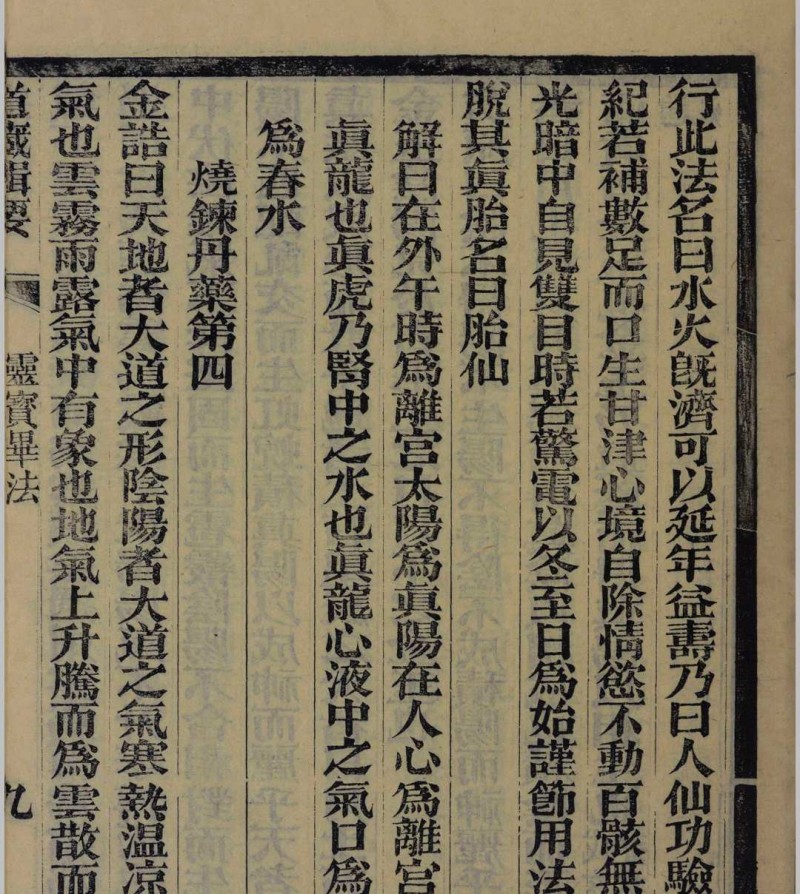 行此法名曰水火旣濟可以延年益壽乃曰人仙功驗
紀若補數足而口生甘津心境自除情慾不動百骸無
光暗中自見雙目時若驚電以冬至日爲始謹節用法
脫其眞胎名曰胎仙
解曰在外午時爲離宮太陽爲眞陽在人心爲離宮
眞龍也眞虎乃腎中之水也眞龍心液中之氣口爲
爲春水
燒鍊丹藥第四
金誥曰天地者大道之形陰陽者大道之氣寒熱温凉
氣也雲霧雨露氣中有象也地氣上升騰而爲雲散而
道藏輯要
靈寶畢法
九